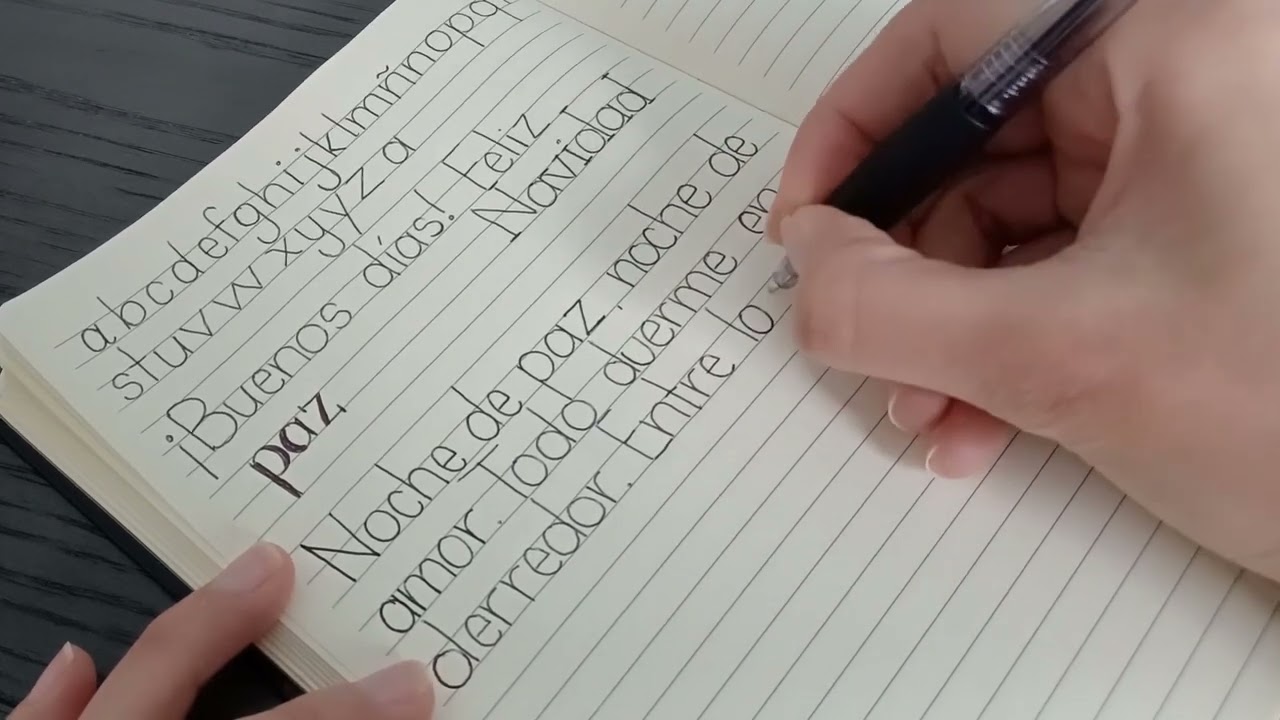 abcdefghijklmnñopq
stuvwxyyz a
¡Buenos días! Feliz
Navidad
paz,
Noche de paz, noche de
amor. Todo duerme en
derredor. Entre lo